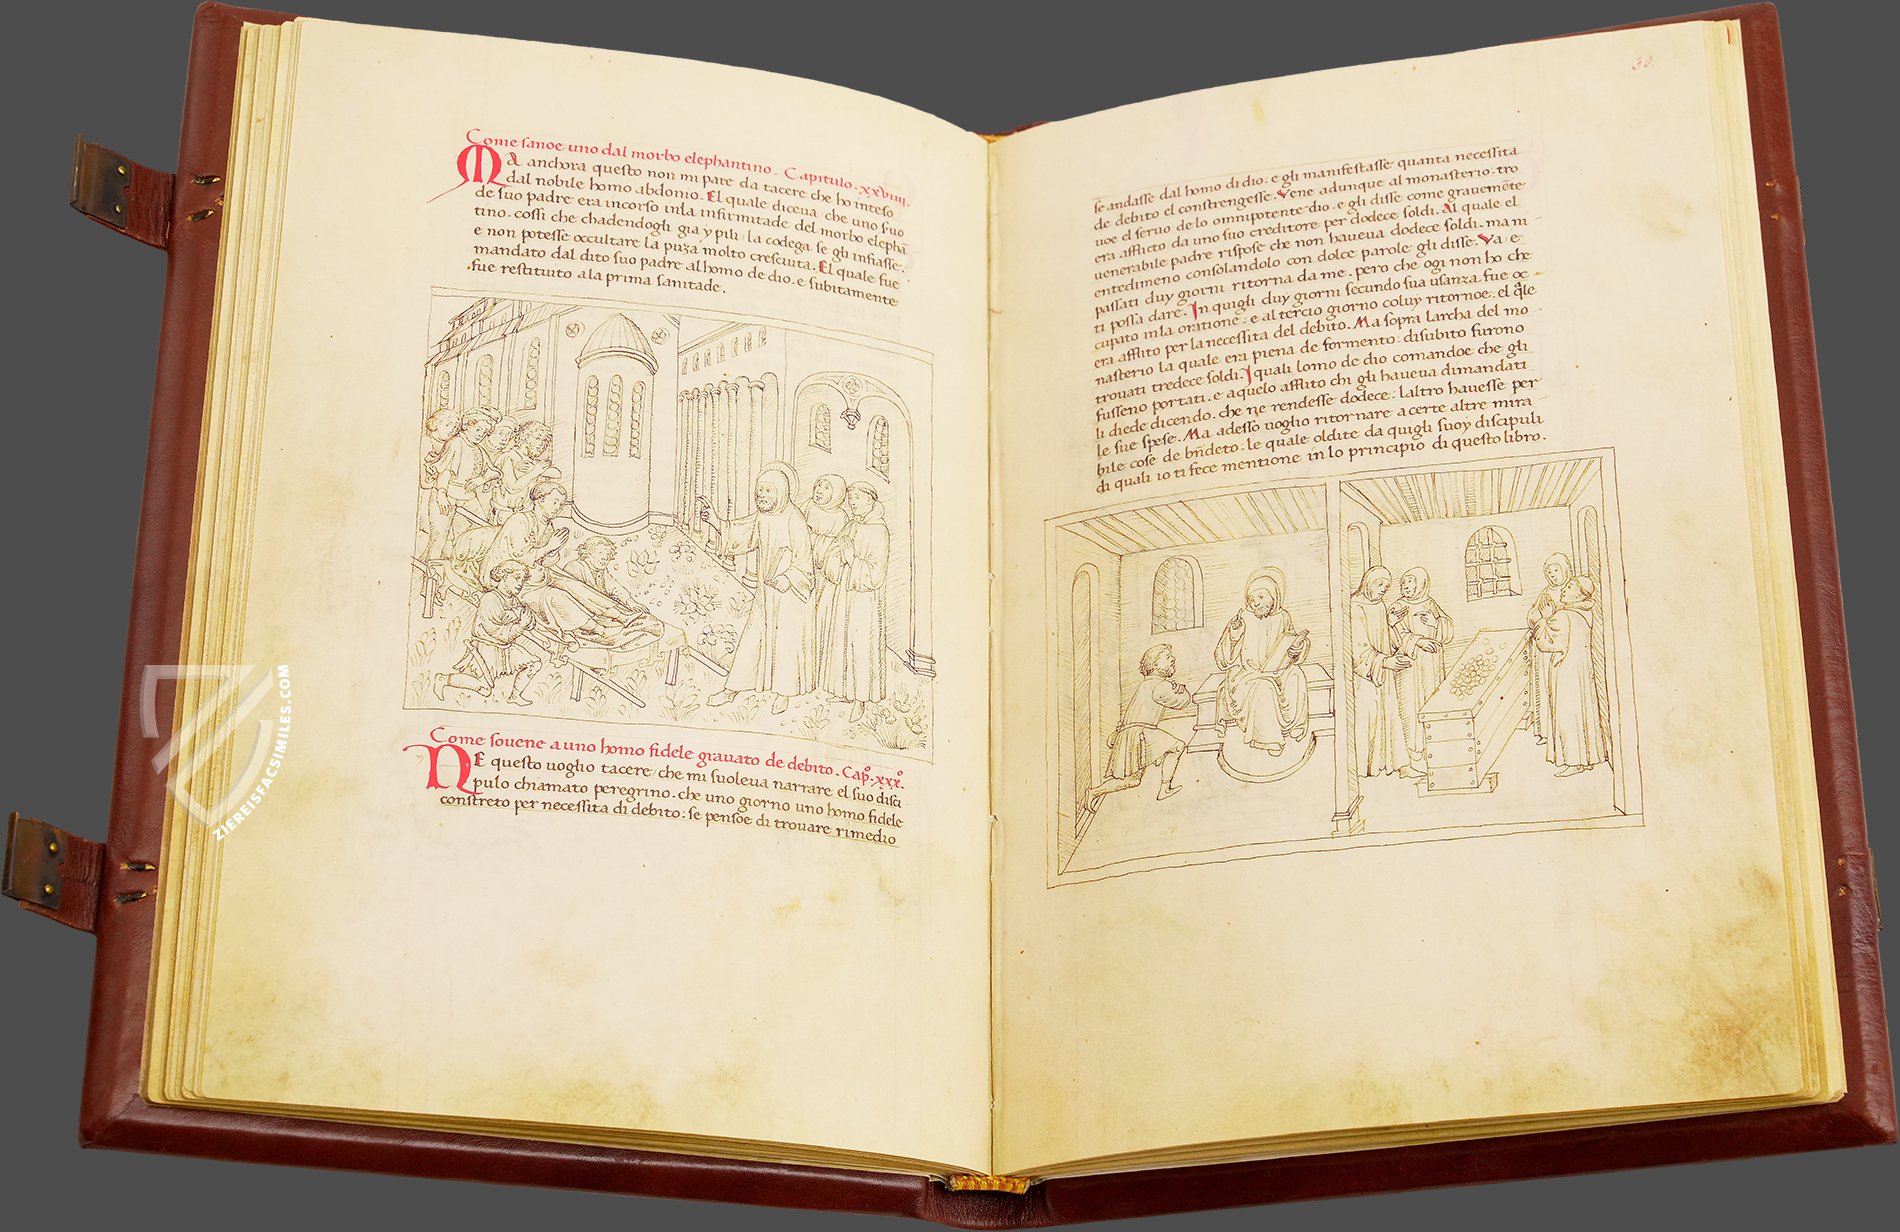 Come sanoe uno dal morbo elephantino. Capitulo. xxviiii.
MA anchora questo non mi pare da tacere che ho inteso
dal nobile homo abdonio. El quale diceua che uno suo
de suo padre era incorso inla infirmitade del morbo elephā
tino. cossi che chadendogli gia y pili / la codega se gli infiasse.
e non potesse occultare la puza molto cresciuta. El quale fue
mandato dal dito suo padre al homo de dio. e subitamente
.fue restituito ala prima sanitade.
Come souene a uno homo fidele grauato de debito. Capo. xxxo.
NE questo uoglio tacere / che mi suoleua narrare el suo disci-
pulo chiamato peregrino. che uno giorno uno homo fidele
constreto per necessita di debito: se pensoe di trouare rimedio
30.
se andasse dal homo di dio. e gli manifestasse quanta necessita
de debito el constrengesse. Vene adunque al monasterio. tro
uoe el seruo de lo omnipotente dio. e gli disse come grauemēte
era afflicto da uno suo creditore per dodece soldi. Al quale el
uenerabile padre rispose che non haueua dodece soldi. ma ni
entedimeno consolandolo con dolce parole gli disse. Va e
passati duy giorni ritorna da me. pero che ogi non ho che
ti possa dare. In quigli duy giorni secundo sua usanza fue oc
cupato inla oratione. e al tercio giorno coluy ritornoe. el q̄le
era afflito per la necessita del debito. Ma sopra larcha del mo
nasterio la quale era piena de formento: disubito furono
trouati tredece soldi. I quali lomo de dio comandoe che gli
fusseno portati. e aquelo afflito chi gli haueua dimandati
li diede dicendo. che ne rendesse dodece: laltro hauesse per
le sue spese. Ma adesso uoglio ritornare a certe altre mira
bile cose de bn̄deto: le quale oldite da quigli suoy discipuli
di quali io ti fece mentione in lo principio di questo libro.
ZIEREISFACSIMILES.COM